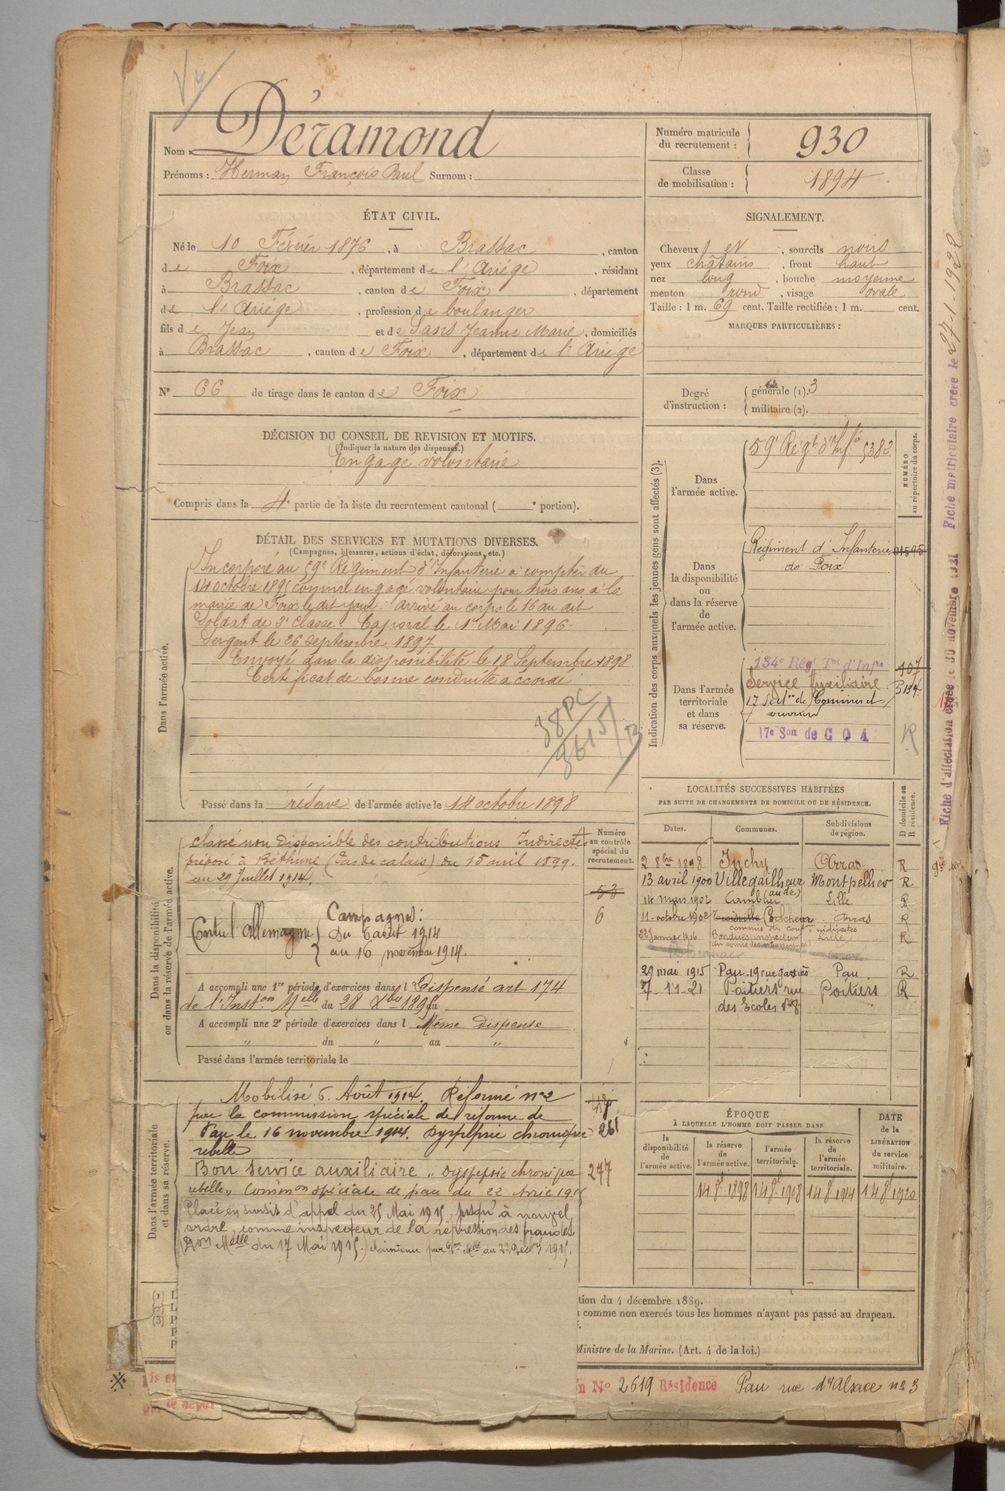 Nom : Déramond
Prénoms : Herman François Paul Surnom :
Numéro matricule du recrutement : 930
Classe de mobilisation : 1894
ÉTAT CIVIL.
Né le 10 Février 1876, à Brassac, canton
de Foix, département de l'Ariège, résidant
à Brassac, canton de Foix, département
de l'Ariège, profession de boulanger
fils de Jean et de Sans Jeanne Marie, domiciliés
à Brassac, canton de Foix, département de l'Ariège
N° 66 de tirage dans le canton de Foix
SIGNALEMENT.
Cheveux et, sourcils noirs
yeux châtains, front haut
nez long, bouche moyenne
menton rond, visage ovale
Taille : 1 m. 69 cent. Taille rectifiée : 1 m. cent.
MARQUES PARTICULIÈRES :
Degré d'instruction : générale (1). 3
militaire (2).
DÉCISION DU CONSEIL DE REVISION ET MOTIFS.
(Indiquer la nature des dispenses.)
Engagé volontaire
Compris dans la 4e partie de la liste du recrutement cantonal ( e portion).
DÉTAIL DES SERVICES ET MUTATIONS DIVERSES.
(Campagnes, blessures, actions d'éclat, décorations, etc.)
Dans l'armée active.
Incorporé au 59e Régiment d'Infanterie à compter du
14 octobre 1895 comme engagé volontaire pour trois ans à la
mairie de Foix le dit jour. Arrivé au corps le 16 au dit
Soldat de 2e classe. Caporal le 1er Mai 1896.
Sergent le 26 Septembre 1897
Envoyé dans la disponibilité le 18 Septembre 1898
Certificat de bonne conduite accordé
38 PC
3615/B
Passé dans la réserve de l'armée active le 14 octobre 1898
Indication des corps auxquels les jeunes gens sont affectés (3).
NUMÉRO au répertoire du corps.
Dans l'armée active.
59e Régt d'Infie 5382
Dans la disponibilité ou dans la réserve de l'armée active.
Régiment d'Infanterie 01505
de Foix
Dans l'armée territoriale et dans sa réserve.
134e Rég Tal d'Infie 107
Service Auxiliaire
17 Sectn de Commis et
ouvriers
17e Son de C O A
R
Dans la disponibilité ou dans la réserve de l'armée active.
Numéro au contrôle spécial du recrutement.
classé non disponible des contributions Indirectes
préposé à Béthune (Pas de calais) du 15 avril 1899.
au 29 Juillet 1914.
53
6
Campagnes :
Contre l'allemagne du 6 août 1914
au 16 novembre 1914.
A accompli une 1re période d'exercices dans l Dispensé art 174
de l'Inston Melle du 28 Xbre 1895 au
A accompli une 2e période d'exercices dans l Même dispense
du " au "
Passé dans l'armée territoriale le
LOCALITÉS SUCCESSIVES HABITÉES
PAR SUITE DE CHANGEMENTS DE DOMICILE OU DE RÉSIDENCE.
Dates. Communes. Subdivisions de région. D domicile ou R résidence.
2 8bre 1898 Inchy Arras R
13 avril 1900 Villegailhenc (aude) Montpellier R
14 mars 1902 Lille R
11 octobre 1902 Arras R
Lille R
29 mai 1915 Pau, 19 rue Pau R
7-11-21 Poitiers rue Poitiers R
des Ecoles
Dans l'armée territoriale et dans sa réserve.
Mobilisé 6 Août 1914. Réformé n°2
par la commission spéciale de réforme de
Pau le 16 novembre 1914. Dyspepsie chronique
rebelle
261
Bon service auxiliaire " dyspepsie chronique
277
rebelle " Common spéciale de pau du 22 avril 1915
Placé en sursis d'appel du 25 Mai 1915, jusqu'à nouvel
ordre, comme inspecteur de la répression des fraudes
Don Melle du 17 Mai 1915.
ÉPOQUE
À LAQUELLE L'HOMME DOIT PASSER DANS
la disponibilité de l'armée active. la réserve de l'armée active. l'armée territoriale. la réserve de l'armée territoriale.
DATE de la LIBÉRATION du service militaire.
14 8bre 1898 14 8bre 1908 14 8bre 1914 14 8bre 1920
tion du 4 décembre 1889.
comme non exercés tous les hommes n'ayant pas passé au drapeau.
Ministre de la Marine. (Art. 4 de la loi.)
N° 2619 Résidence Pau rue d'Alsace n° 3
Fiche matriculaire créée le 27-1-1922